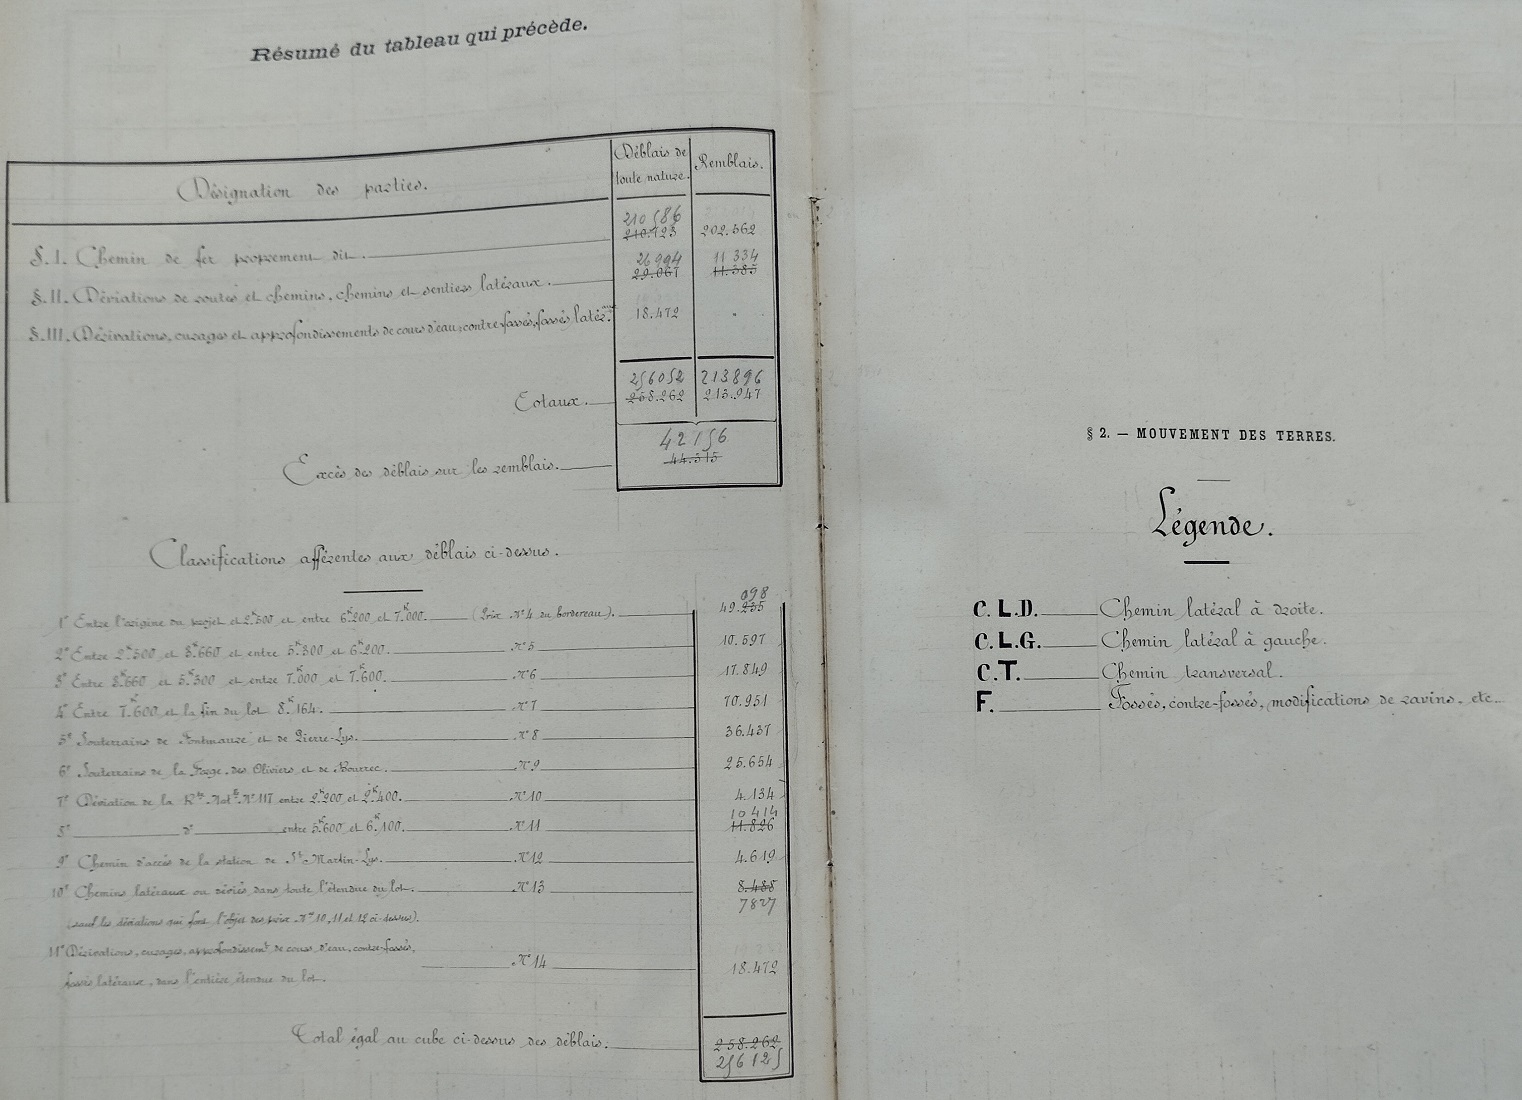 Résumé du tableau qui précède.
Désignation des parties. Déblais de toute nature. Remblais.
210586
§. I. Chemin de fer proprement dit. 210.723 202.562
26994 11334
§. II. Déviations de routes et chemins, chemins et sentiers latéraux. 29.067 11.385
§. III. Dérivations, curages et approfondissements de cours d'eau, contre-fossés, fossés latéraux. 18.472
256052 213896
Totaux. 258.262 213.947
42156
Excès des déblais sur les remblais. 44.315
Classifications afférentes aux déblais ci-dessus.
098
1° Entre l'origine du projet et 2K.500 et entre 6K.200 et 7K.000. (Prix N°4 du bordereau). 49.235
2° Entre 2K.500 et 3K.660 et entre 5K.300 et 6K.200. N°5 10.597
3° Entre 3K.660 et 5K.300 et entre 7K.000 et 7K.600. N°6 17.849
4° Entre 7K.600 et la fin du lot 8K.164. N°7 70.951
5° Souterrains de Fontmaure et de Pierre-Lys. N°8 36.437
6° Souterrains de la Forge, des Oliviers et de Bourrec. N°9 25.654
7° Déviation de la Rte Natle N°117 entre 2K.200 et 2K.400. N°10 4.134
10414
8° d° entre 5K.600 et 6K.100. N°11 11.826
9° Chemin d'accès de la station de St Martin-Lys. N°12 4.619
10° Chemins latéraux ou déviés dans toute l'étendue du lot. N°13 8.488
(sauf les déviations qui font l'objet des prix Nos 10, 11 et 12 ci-dessus). 7827
11° Dérivations, curages, approfondissemts de cours d'eau, contre-fossés,
fossés latéraux, dans l'entière étendue du lot. N°14 18.472
Total égal au cube ci-dessus des déblais. 258.262
256125
§ 2. — MOUVEMENT DES TERRES.
Légende.
C.L.D. Chemin latéral à droite.
C.L.G. Chemin latéral à gauche.
C.T. Chemin transversal.
F. Fossés, contre-fossés, modifications de ravins, etc...